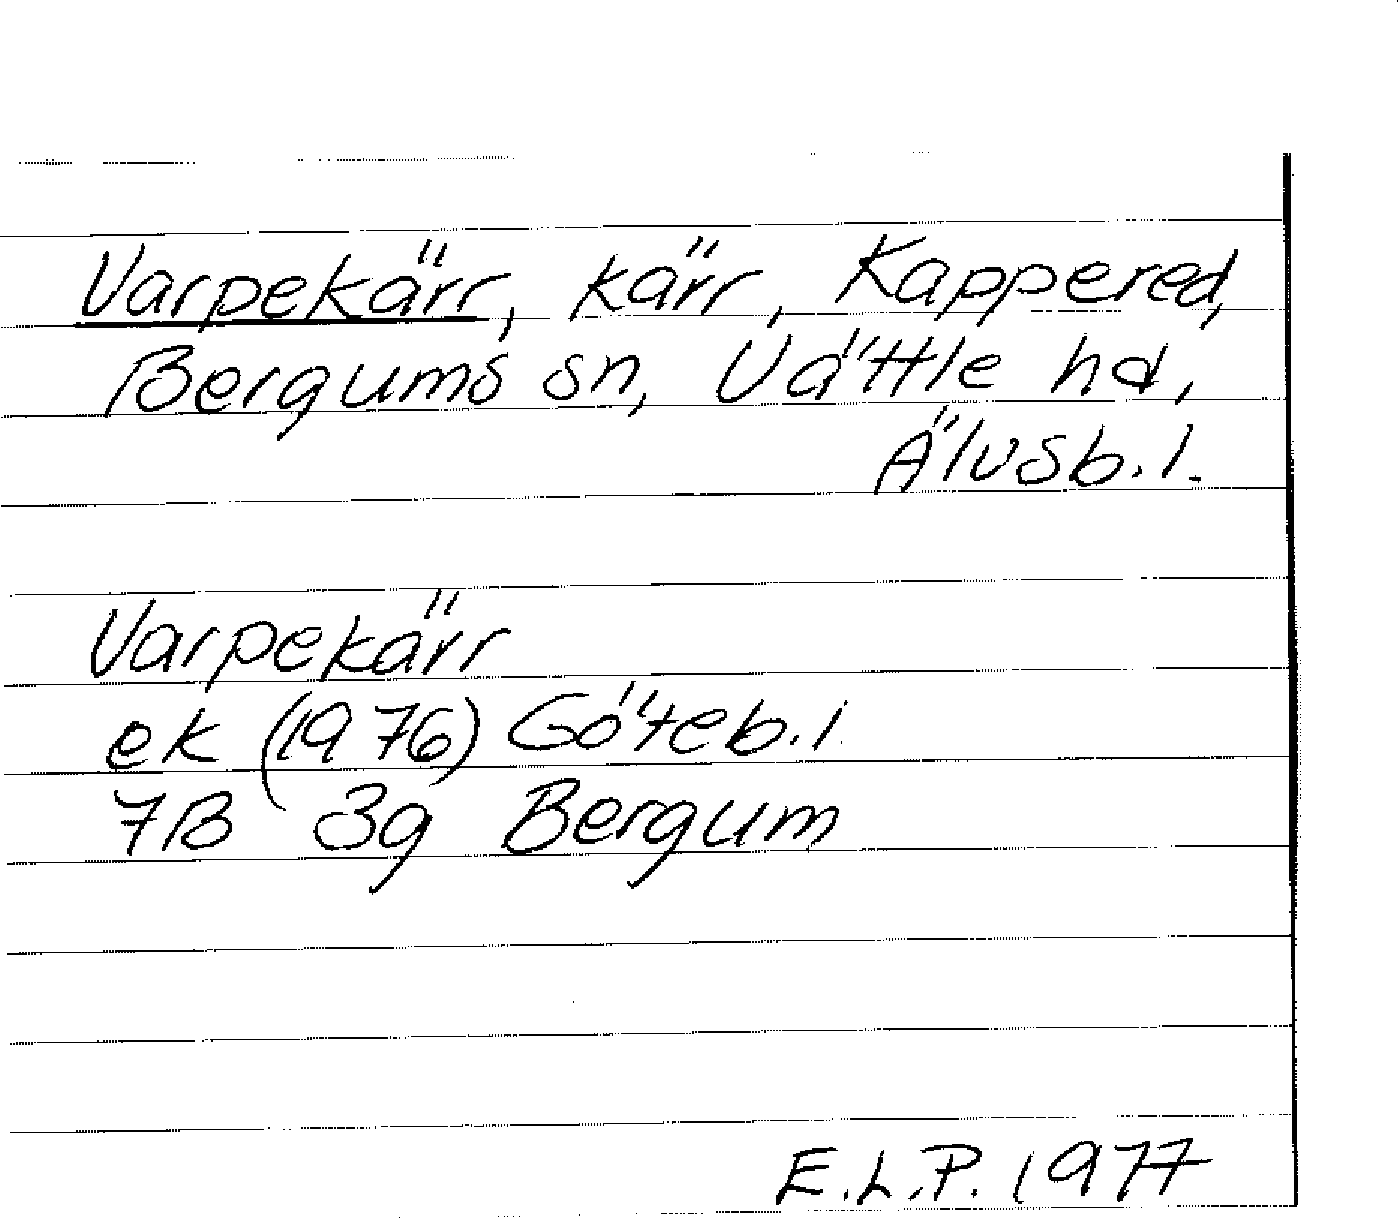 Varpekärr, kärr, Kappered,
Bergums sn, Vättle hd,
Älvsb. l.
Varpekärr
ek (1976) Göteb. l.
7B 3g Bergum
E.L.P. 1977